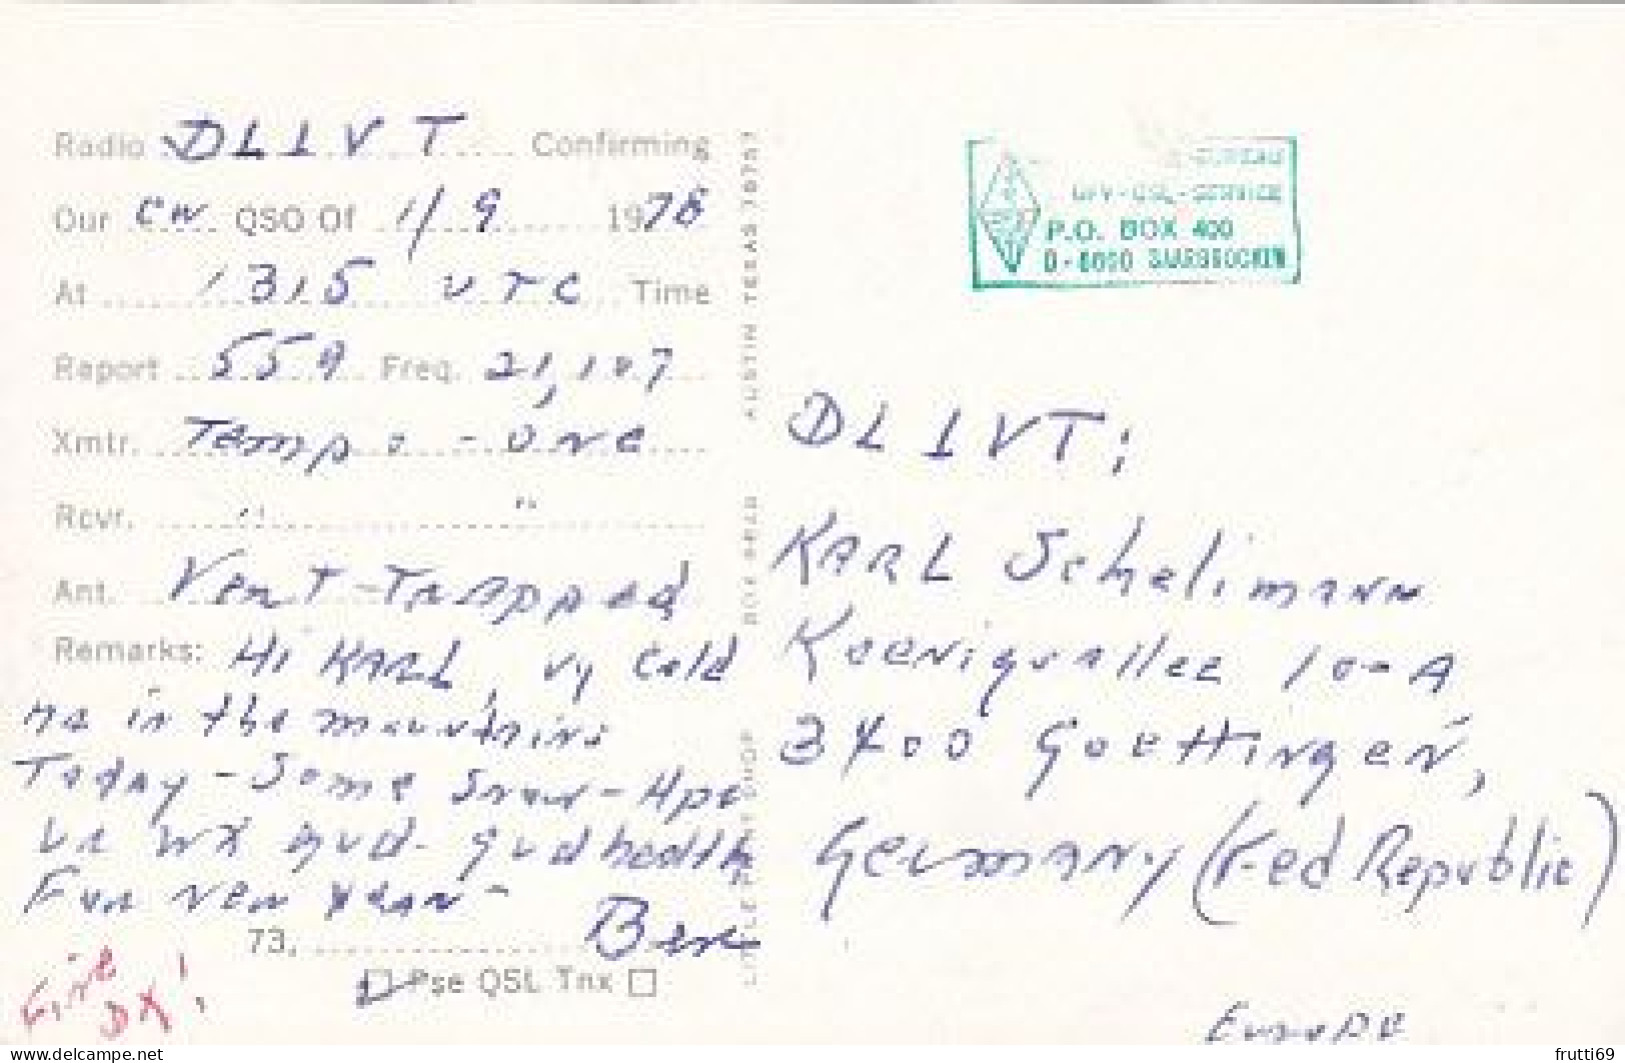 Radio DL1VT Confirming
Our CW QSO Of 1/9 1978
At 1315 UTC Time
Report 559 Freq. 21,107
Xmtr. Tempo-One
Rcvr. " "
Ant. Vert-Trapped
Remarks: Hi KARL, vy Cold
in the mountains
Today - Some Snow - Hpe
Ur WX gud. gud health
For New Year -
73, Ben
Pse QSL Tnx
Fine
DX!
LITTLE PRINT SHOP BOX AUSTIN TEXAS
BUREAU
QSL-SERVICE
P.O. BOX 400
SAARBRÜCKEN
DL1VT:
KARL
10-A
3400 Goettingen,
Germany (Fed Republic)
Europe
frutti69
www.delcampe.net